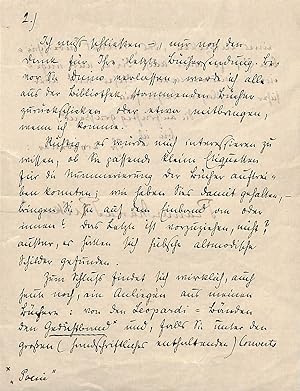 2.)
Ich muß schließen –, nur noch den
Dank für Ihre letzte Büchersendung. Be-
vor Sie verlassen werde ich alle
aus der Bibliothek stammenden Bücher
zurückschicken oder etwa mitbringen,
wenn ich komme.
es würde mich interessieren zu
wissen, ob Sie passende kleine Etiquetten
für die Nummerierung der Bücher auftrei-
ben konnten; wie haben Sie damit gehalten, –
bringen Sie sie auf dem Einband an oder
innen? das Letzte ist vorzuziehen, nicht?
außer, es hätten sich hübsche altmodische
Schilder gefunden.
Zum Schluß findet sich wirklich, auch
heute noch, ein Anliegen aus meinen
Büchern: von den Leopardi = Bänden
den Gedichtband* und, falls Sie unter den
großen (handschriftliches enthaltenden)
* „Poesie"